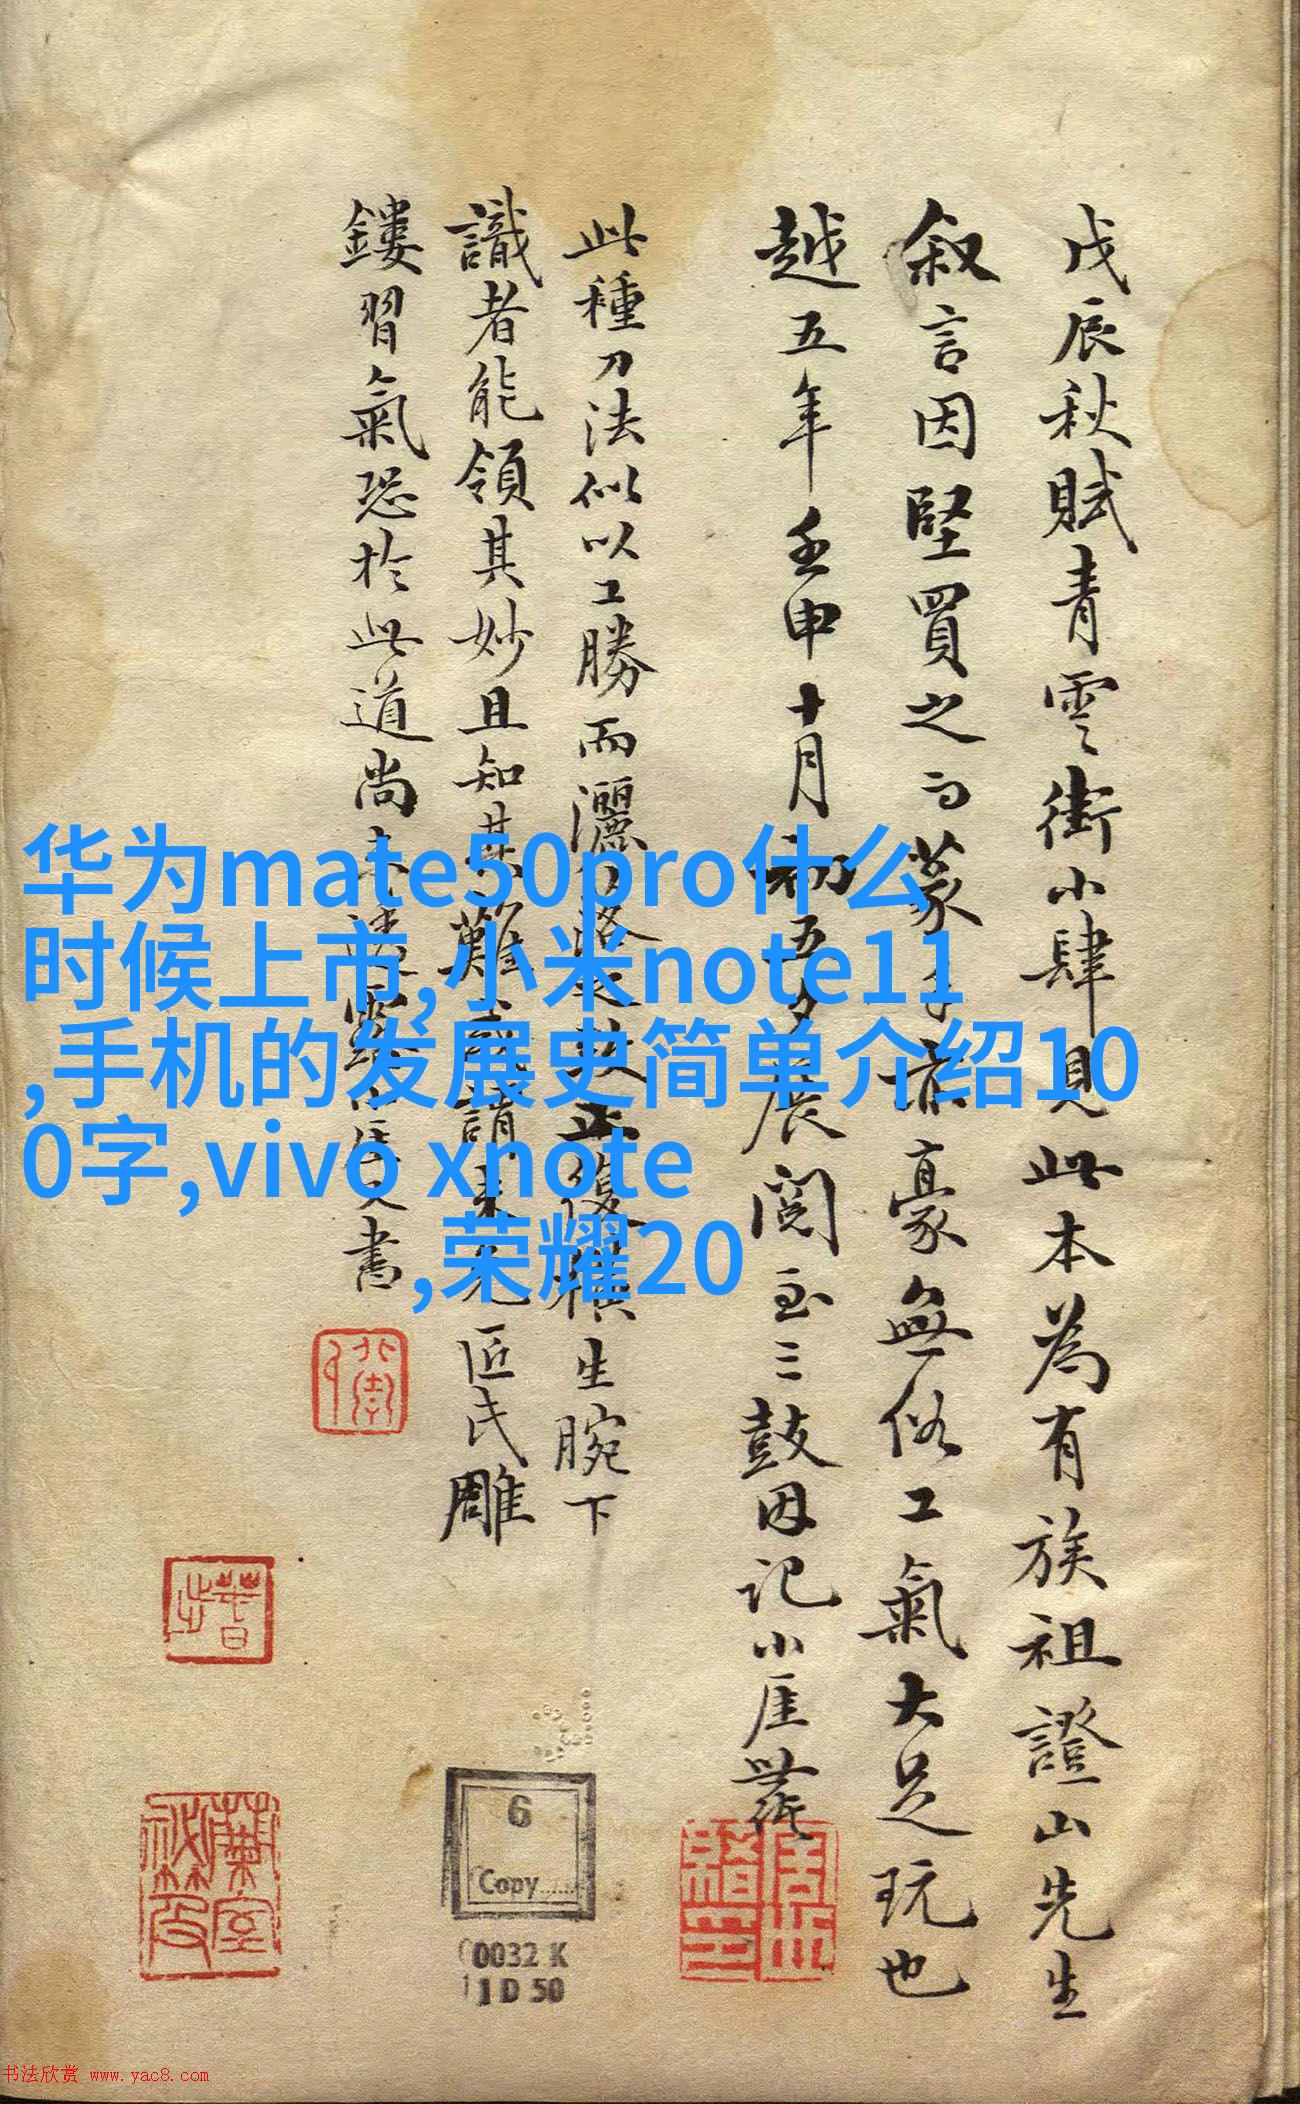 戊辰秋賦青雲街小肆見此本為有族祖證山先生
叙言因堅買之篆手豪無俗工氣大足玩也
越五年壬申十月初五夕展閱至三鼓因記小厓
此種刀法似以工勝而灑落之致正復橫生腕下
識者能領其妙且知其難匠氏雕
鏤習氣恐於此道尚未書
华为mate50pro什么
时候上市,小米note11
,手机的发展史简单介绍10
0字,vivo xnote
,荣耀20
6
Copy......
0032 K
1 D 50
书法欣赏 www.yac8.com